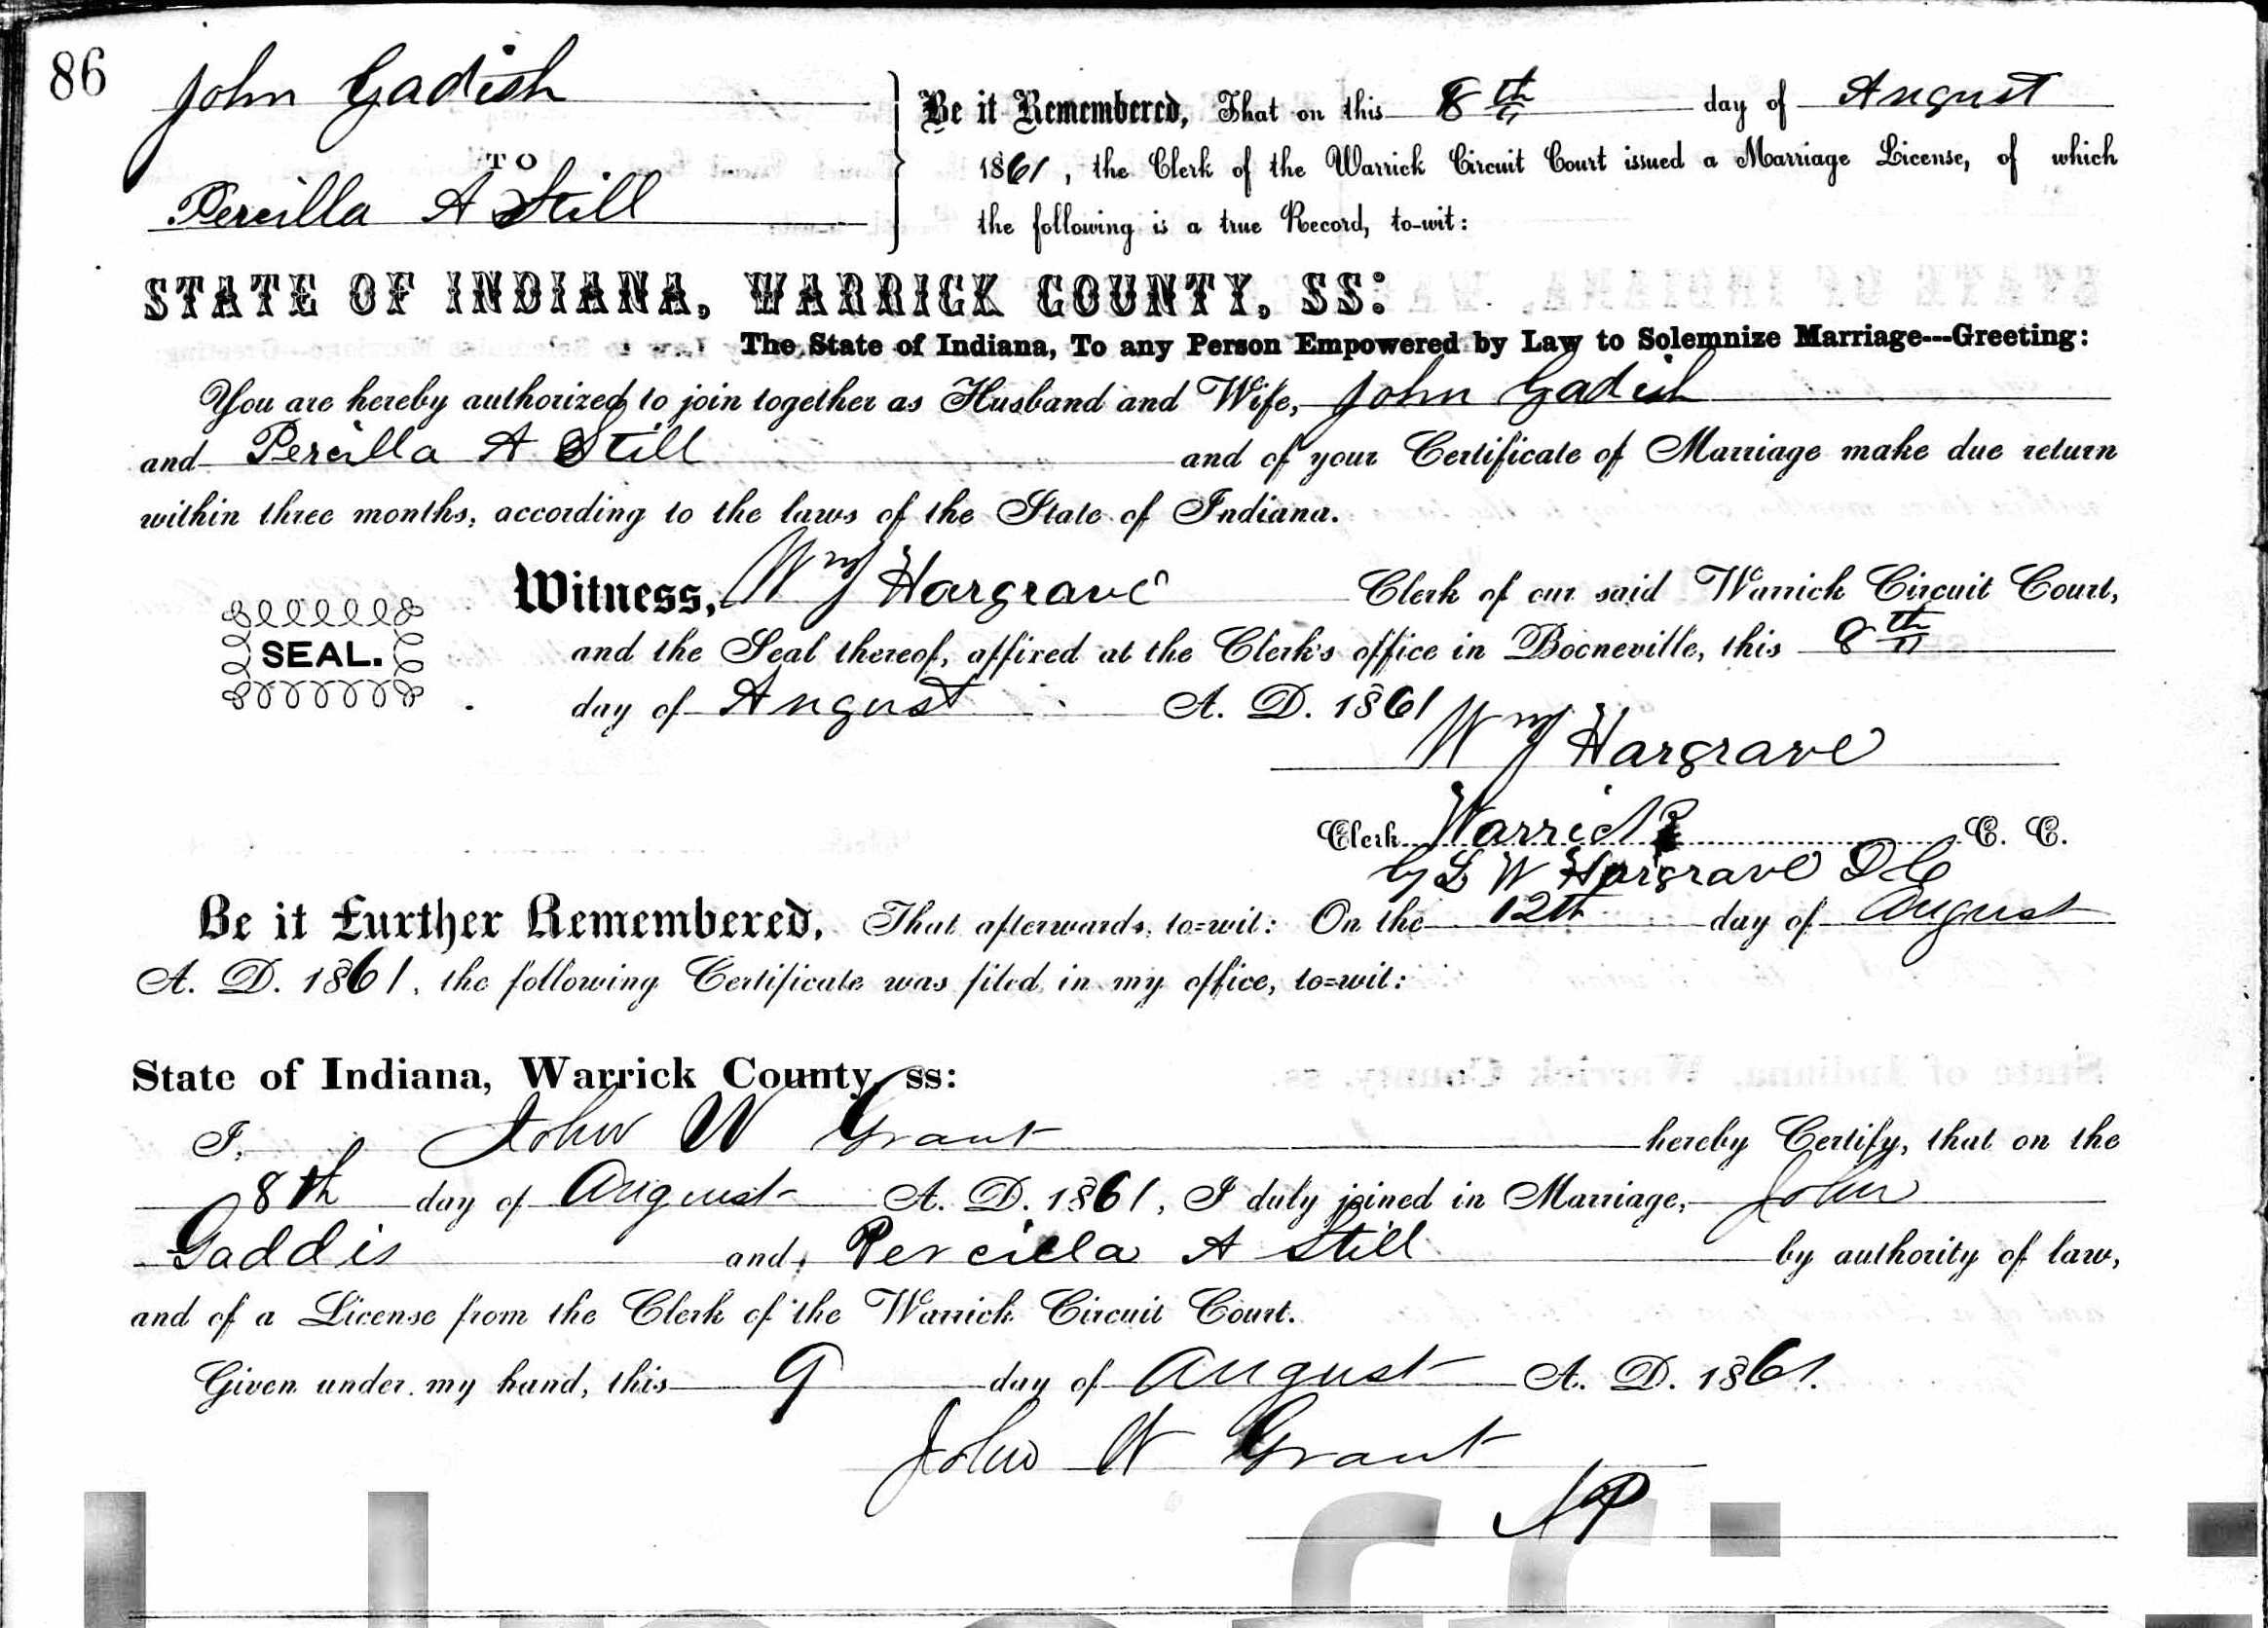 86
John Gadish
TO
Percilla A Still
Be it Remembered, That on this 8th day of August
1861, the Clerk of the Warrick Circuit Court issued a Marriage License, of which
the following is a true Record, to-wit:
STATE OF INDIANA, WARRICK COUNTY, SS:
The State of Indiana, To any Person Empowered by Law to Solemnize Marriage---Greeting:
You are hereby authorized to join together as Husband and Wife, John Gadish
and Percilla A Still and of your Certificate of Marriage make due return
within three months, according to the laws of the State of Indiana.
Witness, Wm J Hargrave Clerk of our said Warrick Circuit Court,
SEAL.
and the Seal thereof, affixed at the Clerk's office in Booneville, this 8th
day of August A. D. 1861
Wm J Hargrave
Clerk Warrick C. C.
By L W Hargrave D C
Be it Further Remembered, That afterwards, to=wit: On the 12th day of August
A. D. 1861, the following Certificate was filed in my office, to=wit:
State of Indiana, Warrick County, ss:
I, John W Grant hereby Certify, that on the
8th day of August A. D. 1861, I duly joined in Marriage, John
Gaddis and Percilla A Still by authority of law,
and of a License from the Clerk of the Warrick Circuit Court.
Given under my hand, this 9 day of August A. D. 1861.
John W Grant
JP